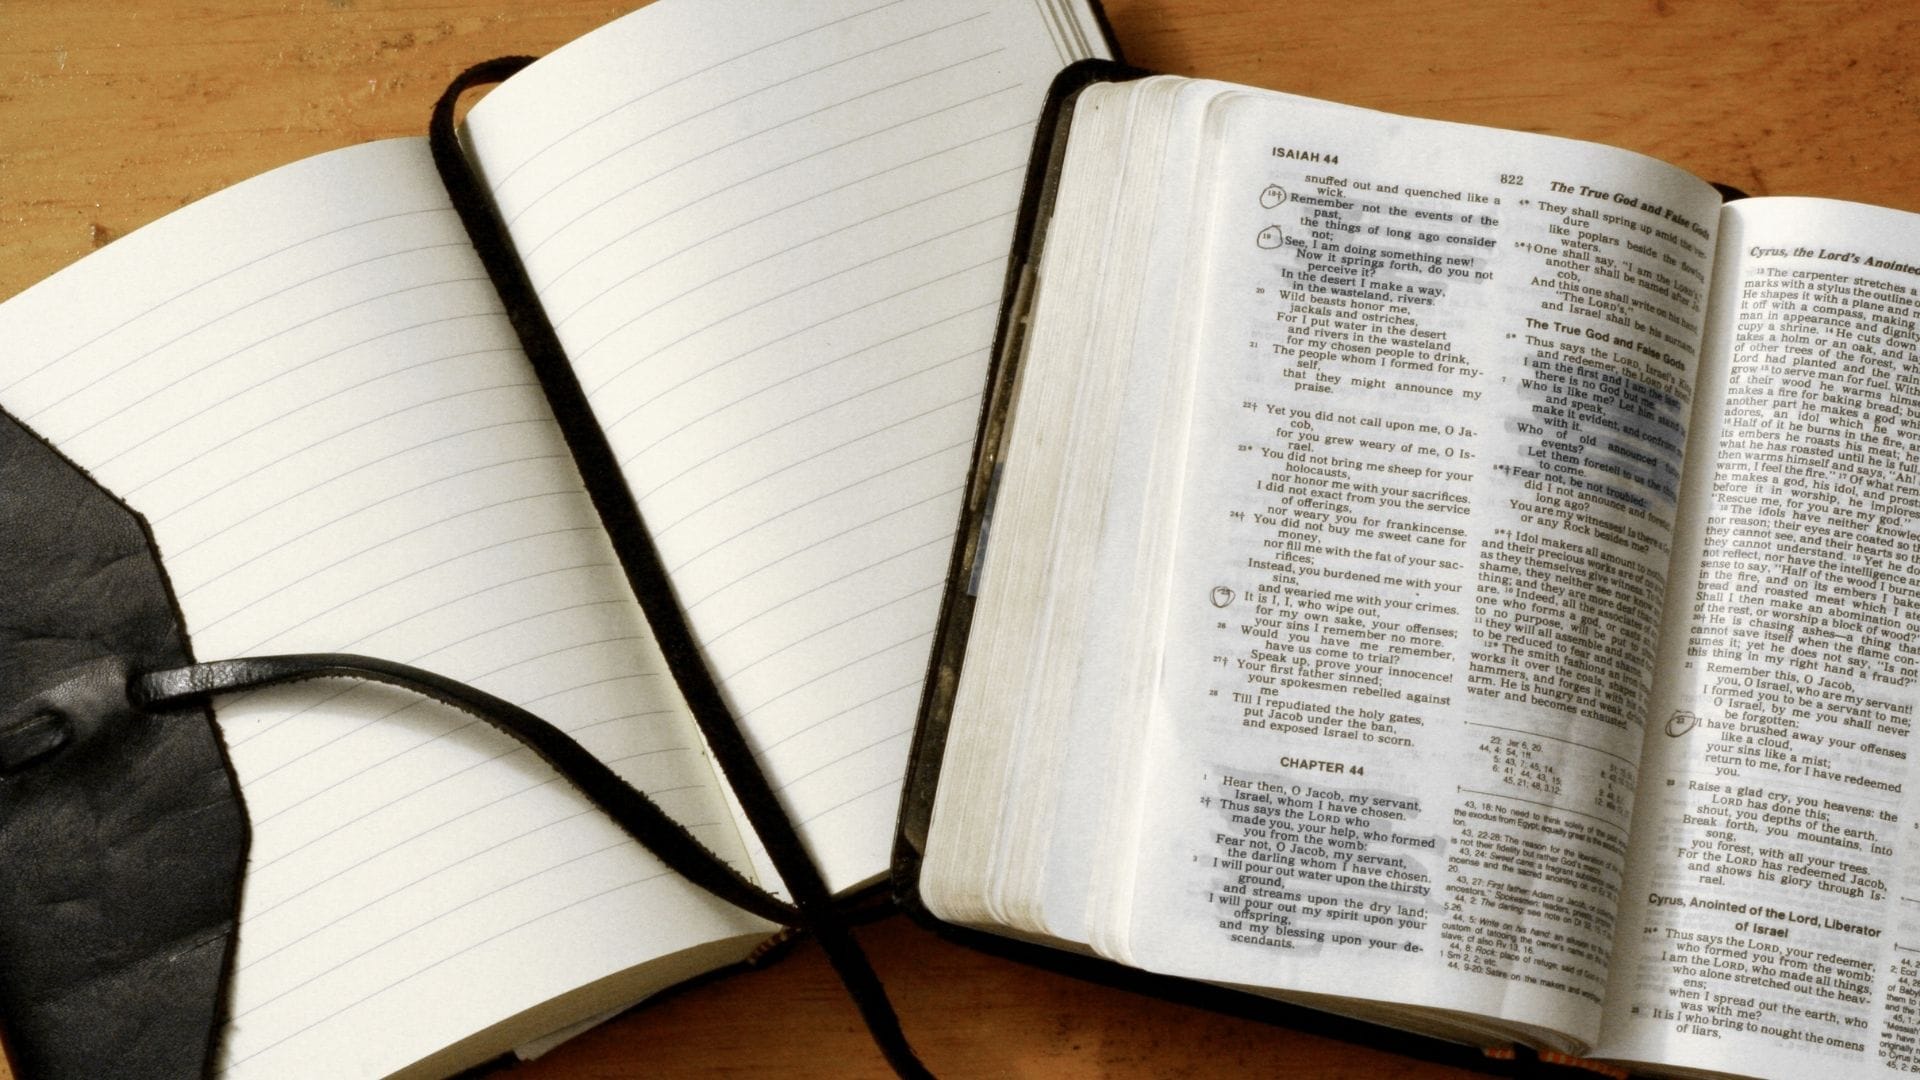 ISAIAH 44
822
The True God and False Gods
snuffed out and quenched like a
wick.
18† Remember not the events of the
past,
the things of long ago consider
not;
19 See, I am doing something new!
Now it springs forth, do you not
perceive it?
In the desert I make a way,
in the wasteland, rivers.
20 Wild beasts honor me,
jackals and ostriches,
For I put water in the desert
and rivers in the wasteland
for my chosen people to drink,
21 The people whom I formed for my-
self,
that they might announce my
praise.
22† Yet you did not call upon me, O Ja-
cob,
for you grew weary of me, O Is-
rael.
23* You did not bring me sheep for your
holocausts,
nor honor me with your sacrifices.
I did not exact from you the service
of offerings,
nor weary you for frankincense.
24† You did not buy me sweet cane for
money,
nor fill me with the fat of your sac-
rifices;
Instead, you burdened me with your
sins,
and wearied me with your crimes.
25 It is I, I, who wipe out,
for my own sake, your offenses;
your sins I remember no more.
26 Would you have me remember,
have us come to trial?
Speak up, prove your innocence!
27† Your first father sinned;
your spokesmen rebelled against
me
28 Till I repudiated the holy gates,
put Jacob under the ban,
and exposed Israel to scorn.
CHAPTER 44
1 Hear then, O Jacob, my servant,
Israel, whom I have chosen.
2† Thus says the LORD who
made you, your help, who formed
you from the womb:
Fear not, O Jacob, my servant,
the darling whom I have chosen.
3 I will pour out water upon the thirsty
ground,
and streams upon the dry land;
I will pour out my spirit upon your
offspring,
and my blessing upon your de-
scendants.
4* They shall spring up amid the
dure
like poplars beside the flowing
waters.
5*† One shall say, "I am the LORD's,"
another shall be named after Ja-
cob,
And this one shall write on his hand,
"The LORD's,"
and Israel shall be his surname.
The True God and False Gods
6* Thus says the LORD, Israel's King
and redeemer, the LORD of hosts:
I am the first and I am the last;
there is no God but me.
7 Who is like me? Let him stand up
and speak,
make it evident, and confront me
with it.
Who of old announced future
events?
Let them foretell to us the things
to come.
8*† Fear not, be not troubled:
did I not announce and foretell
long ago?
You are my witnesses! Is there a
or any Rock besides me?
9*† Idol makers all amount to nothing,
and their precious works are of no
as they themselves give witness. To
shame, they neither see nor know
thing; and they are more deaf than
are. 10 Indeed, all the associates of
one who forms a god, or casts
to no purpose, will be put to
11 they will all assemble and stand
to be reduced to fear and shame.
12* The smith fashions an iron
works it over the coals, shapes it
hammers, and forges it with his
arm. He is hungry and weak,
water and becomes exhausted.
23: Jer 6, 20.
44, 4: 54, 1ff.
5: 43, 7; 45, 14.
6: 41, 44; 43, 15;
45, 21; 48, 3.12;
43, 18: No need to think solely of the
the exodus from Egypt;
43, 22-28: The reason for the liberation of
is not their fidelity but rather God's
43, 24: Sweet cane: a fragrant substance
incense and the sacred anointing oil;
20.
43, 27: First father: Adam or Jacob,
ancestors." Spokesmen: leaders, priests,
44, 2: The darling: see note on Dt 32,
5.26.
44, 5: Write on his hand: an allusion to the
custom of tattooing the owner's name on the
slave; cf also Rv 13, 16.
44, 8: Rock: place of refuge;
1 Sm 2, 2; etc.
44, 9-20: Satire on the makers and
Cyrus, the Lord's Anointed
13 The carpenter stretches a
marks with a stylus the outline
He shapes it with a plane and
it off with a compass, making
man in appearance and dignity
cupy a shrine. 14 He cuts down
takes a holm or an oak, and
of other trees of the forest,
Lord had planted and the rain
grow 15 to serve man for fuel. With
of their wood he warms himself
makes a fire for baking bread; but
another part he makes a god
adores, an idol which he
16 Half of it he burns in the fire,
its embers he roasts his meat; he
what he has roasted until he is full,
then warms himself and says, "Ah!
warm, I feel the fire." 17 Of what
he makes a god, his idol, and
before it in worship, he implores
"Rescue me, for you are my god."
18 The idols have neither
nor reason; their eyes are coated so
they cannot see, and their hearts so
they cannot understand. 19 Yet he does
not reflect, nor have the intelligence and
sense to say, "Half of the wood I burned
in the fire, and on its embers I baked
bread and roasted meat which I ate.
Shall I then make an abomination out
of the rest, or worship a block of wood?"
20† He is chasing ashes—a thing that
cannot save itself when the flame con-
sumes it; yet he does not say, "Is not
this thing in my right hand a fraud?"
21 Remember this, O Jacob,
you, O Israel, who are my servant!
I formed you to be a servant to me;
O Israel, by me you shall never
be forgotten:
22 I have brushed away your offenses
like a cloud,
your sins like a mist;
return to me, for I have redeemed
you.
23 Raise a glad cry, you heavens: the
LORD has done this;
shout, you depths of the earth.
Break forth, you mountains, into
song,
you forest, with all your trees.
For the LORD has redeemed Jacob,
and shows his glory through Is-
rael.
Cyrus, Anointed of the Lord, Liberator
of Israel
24* Thus says the LORD, your redeemer,
who formed you from the womb:
I am the LORD, who made all things,
who alone stretched out the heav-
ens;
when I spread out the earth, who
was with me?
25 It is I who bring to nought the omens
of liars,